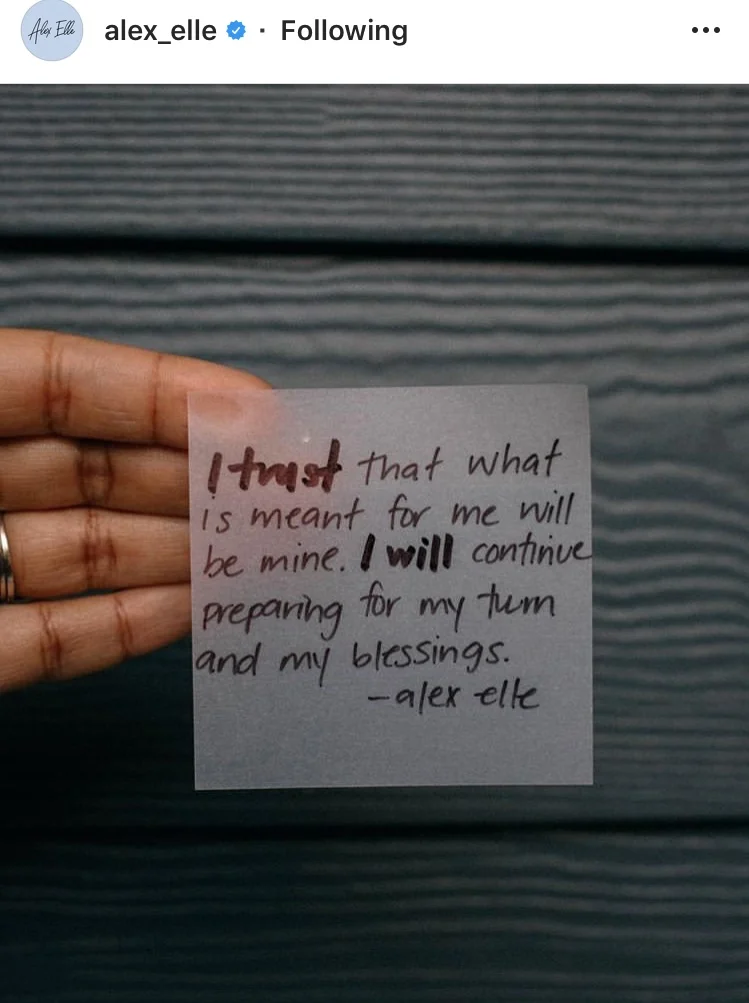 Alex Elle
alex_elle · Following
I trust that what
is meant for me will
be mine. I will continue
preparing for my turn
and my blessings.
-alex elle